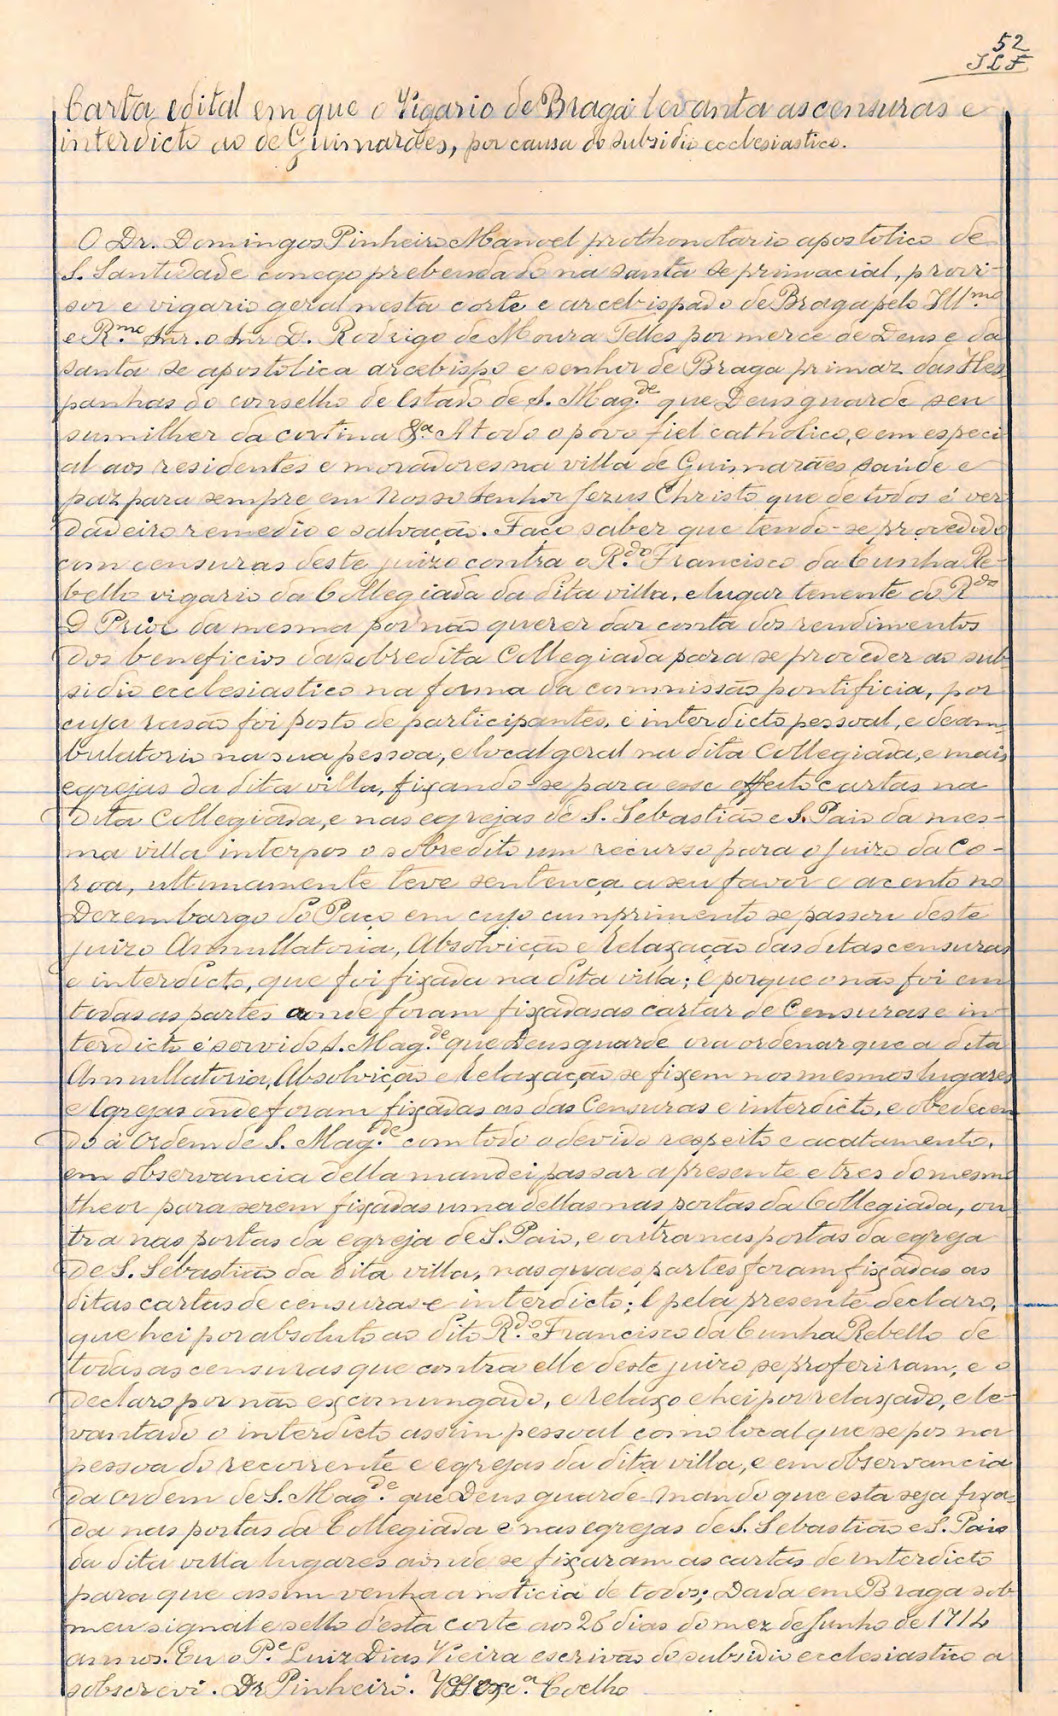 52
Carta edital em que o Vigario de Braga levanta as censuras e
interdicto ao de Guimarães, por causa do subsidio ecclesiastico.
O Dr. Domingos Pinheiro Manoel prothonotario apostolico de
S. Santidade conego prebendado na santa se primacial, provi-
sor e vigario geral nesta corte e arcebispado de Braga pelo Ill.mo
e R.mo Snr. o Snr D. Rodrigo de Moura Telles por merce de Deus e da
santa se apostolica arcebispo e senhor de Braga primaz das Hes
panhas do conselho de Estado de S. Mag.de que Deus guarde seu
sumilher da cortina &.a A todo o povo fiel catholico, e em especi-
al aos residentes e moradores na villa de Guimarães, saúde e
paz para sempre em Nosso Senhor Jezus Christo que de todos é ver
dadeiro remedio e salvação. Faço saber que tendo-se procedido
com censuras deste juizo contra o R.do Francisco da Cunha Re-
bello vigario da Collegiada da dita villa, e lugar tenente do R.do
D Prior da mesma por não querer dar conta dos rendimentos
dos beneficios da sobredita Collegiada para se proceder ao sub-
sidio ecclesiastico na forma da commissão pontificia, por
cuja rasão foi posto de participantes, e interdicto pessoal, e deam-
bulatorio na sua pessoa, e local geral na dita Collegiada, e mais
egrejas da dita villa, fixando-se para esse effeito cartas na
dita Collegiada, e nas egrejas de S. Sebastião e S. Paio da mes-
ma villa interpos o sobredito um recurso para o Juizo da Co-
roa, ultimamente teve sentença a seu favor e acento no
Dezembargo do Paço em cujo cumprimento se passou deste
juizo Annullatoria, Absolvição e Relaxação das ditas censuras
e interdicto, que foi fixada na dita villa; E porque o não foi em
todas as partes aonde foram fixadas as cartas de Censuras e in-
terdicto é servido S. Mag.de que Deus guarde ora ordenar que a dita
Annullatoria, Absolvição e Relaxação se fixem nos mesmos lugares
e Egrejas onde foram fixadas as das Censuras e interdicto, e obedecen
do á Ordem de S. Mag.de com todo o devido respeito e acatamento,
em observancia della mandei passar a presente e tres do mesmo
theor para serem fixadas uma dellas nas portas da Collegiada, ou
tra nas portas da egreja de S. Paio, e outra nas portas da egreja
de S. Sebastião da dita villa, nas quaes partes foram fixadas as
ditas cartas de censuras e interdicto; E pela presente declaro,
que hei por absoluto ao dito R.do Francisco da Cunha Rebello de
todas as censuras que contra elle deste juizo se proferiram, e o
declaro por não excomungado, e relaxo e hei por relaxado, e le-
vantado o interdicto assim pessoal como local que se pos na
pessoa do recorrente e egrejas da dita villa, e em observancia
da Ordem de S. Mag.de que Deus guarde mando que esta seja fixa-
da nas portas da Collegiada e nas egrejas de S. Sebastião e S. Paio
da dita villa lugares aonde se fixaram as cartas de interdicto
para que assim venha a noticia de todos; Dada em Braga sob
meu signal e sello d'esta corte aos 26 dias do mez de Junho de 1714
annos. Eu o P.e Luiz Dias Vieira escrivão do subsidio ecclesiastico a
sobscrevi. Dr Pinheiro. Coelho